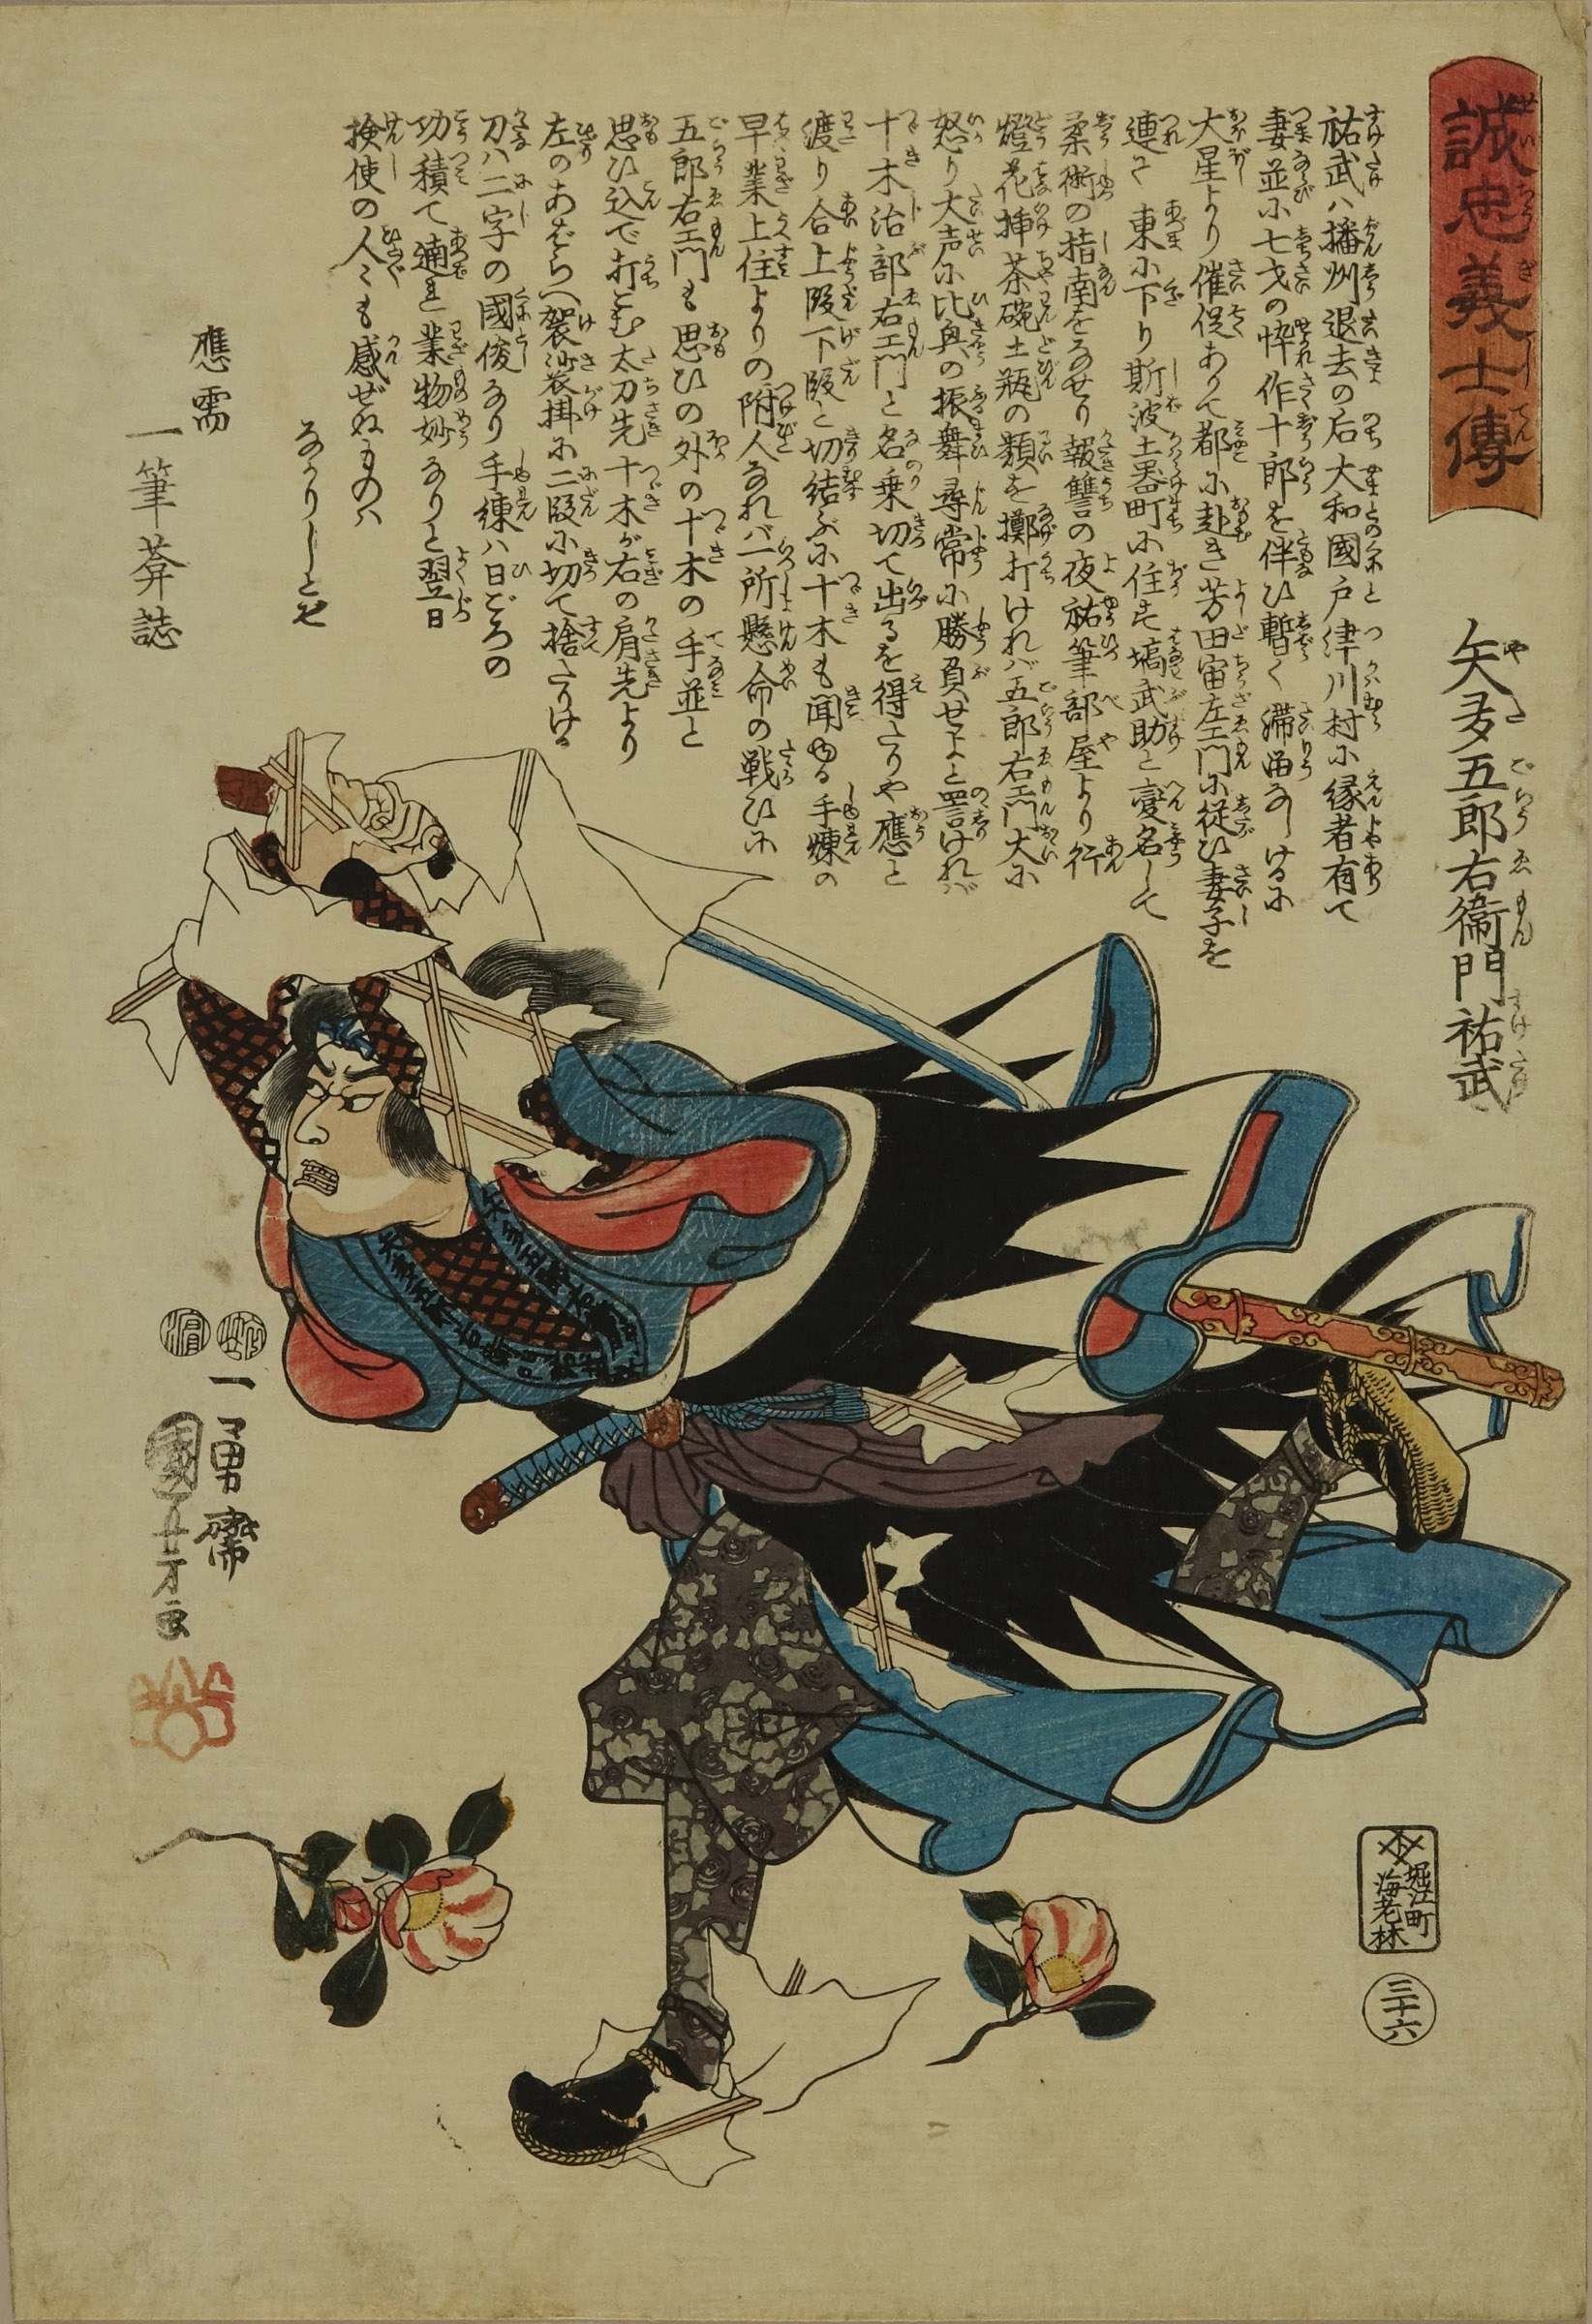 誠忠義士傳
矢多五郎右衞門祐武
祐武ハ播州退去の后大和國戸津川村に縁者有て
妻並に七才の忰作十郎を伴ひ暫く滞留なしけるに
大星より催促ありて都に赴き芳田宙左エ門に従ひ妻子を
連て東に下り斯波土器町に住す塙武助と変名して
柔術の指南をなせり報讐の夜祐筆部屋より行
燈花挿茶碗土瓶の類を擲打けれバ五郎右エ門大に
怒り大声に比興の振舞尋常に勝負せよと罵けれバ
十木治部右エ門と名乗切て出るを得たりや應と
渡り合上段下段と切結ぶに十木も聞ゆる手煉の
早業上住よりの附人なれバ一所懸命の戦ひに
五郎右エ門も思ひの外の十木の手並と
思ひ込で打こむ太刀先十木が右の肩先より
左のあばらへ袈裟掛に二段に切て捨たりける
刀ハ二字の國俊なり手練ハ日ごろの
功積て遖れ業物妙なりと翌日
検使の人〻も感ぜぬものハ
なかりしとぞ
應需
一筆葊誌
一勇齋
國芳画
堀江町
海老林
三十六